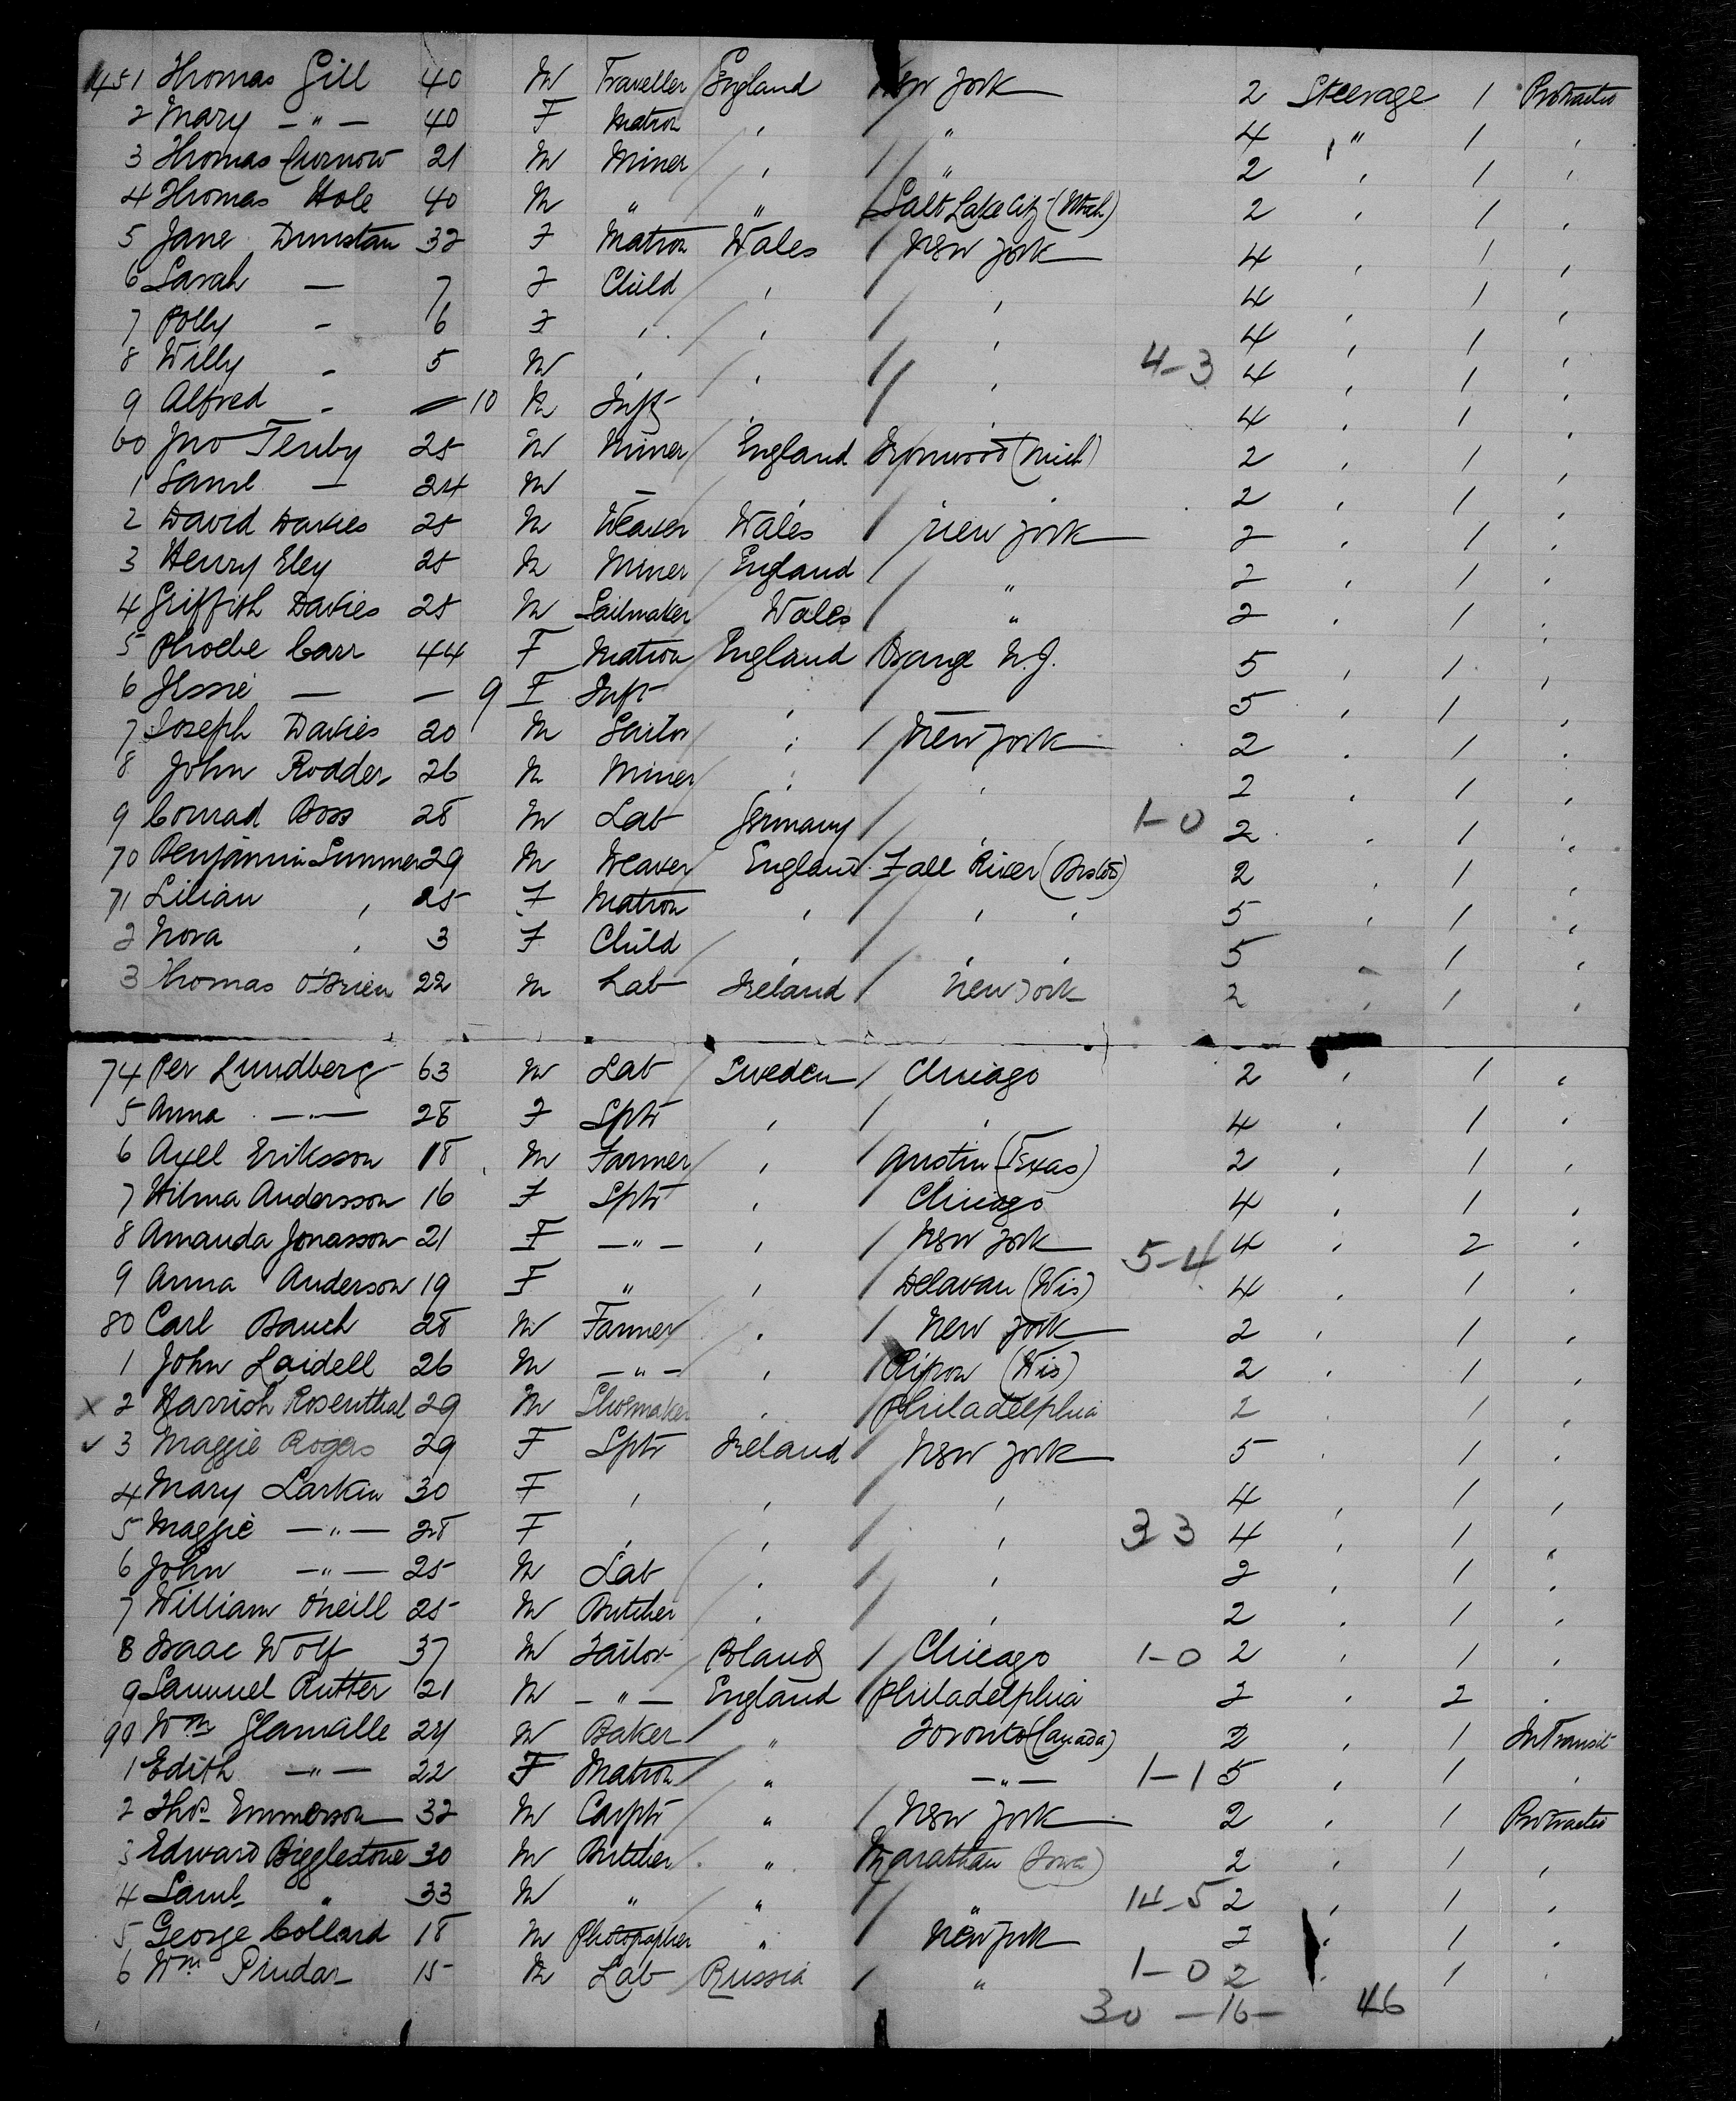 451 Thomas Gill 40 M Traveller England New York 2 Steerage 1 Protracted
2 Mary — " — 40 F Matron , " 4 " 1 ,
3 Thomas Curnow 21 M Miner , " 2 , 1 ,
4 Thomas Hole 40 M " " Salt Lake City (Utah) 2 , 1 ,
5 Jane Dunstan 32 F Matron Wales New York 4 , 1 ,
6 Sarah — 7 F Child , , 4 , 1 ,
7 Polly - 6 F , , , 4 , 1 ,
8 Willy - 5 M , , , 4-3 4 , 1 ,
9 Alfred - — 10 M Inft , , 4 , 1 ,
60 Jno Tenby 25 M Miner England Ironwood (Mich) 2 , 1 ,
1 Saml — 24 M — , , 2 , 1 ,
2 David Davies 25 M Weaver Wales New York 2 , 1 ,
3 Henry Eley 25 M Miner England " 2 , 1 ,
4 Griffith Davies 25 M Sailmaker Wales " 2 , 1 ,
5 Phoebe Carr 44 F Matron England Orange N.J. 5 , 1 ,
6 Jessie — — 9 F Inft , — 5 , 1 ,
7 Joseph Davies 20 M Sailor , New York 2 , 1 ,
8 John Rodder 26 M Miner , , 2 , 1 ,
9 Conrad Boss 28 M Lab Germany , 1-0 2 , 1 ,
70 Benjamin Summer 29 M Weaver England Fall River 2 , 1 ,
71 Lilian , 25 F Matron , , , 5 , 1 ,
2 Nora , 3 F Child , , , 5 , 1 ,
3 Thomas O'Brien 22 M Lab Ireland New York 2 , 1 ,
74 Per Lundberg 63 M Lab Sweden Chicago 2 , 1 ,
5 Anna — " — 28 F Sptr , , 4 , 1 ,
6 Axel Eriksson 18 M Farmer , Austin (Texas) 2 , 1 ,
7 Hilma Andersson 16 F Sptr , Chicago 4 , 1 ,
8 Amanda Jonasson 21 F — " — , New York 5-4 4 , 2 ,
9 Anna Anderson 19 F " , Delavan (Wis) 4 , 1 ,
80 Carl Bauch 28 M Farmer , New York 2 , 1 ,
1 John Laidell 26 M — " — , Ripon (Wis) 2 , 1 ,
x 2 Harrish Rosenthal 29 M Shoemaker , Philadelphia 2 , 1 ,
✓ 3 Maggie Rogers 29 F Sptr Ireland New York 5 , 1 ,
4 Mary Larkin 30 F , , , 4 , 1 ,
5 Maggie — " — 28 F , , , 3 3 4 , 1 ,
6 John — " — 25 M Lab , , 2 , 1 ,
7 William O'Neill 25 M Butcher , , 2 , 1 ,
8 Isaac Wolf 37 M Tailor Poland Chicago 1-0 2 , 1 ,
9 Samuel Rutter 21 M — " — England Philadelphia 2 , 2 ,
90 Wm Glanvalle 24 M Baker " Toronto (Canada) 2 , 1 In Transit
1 Edith — " — 22 F Matron " — " — 1-1 5 , 1 ,
2 Thos Emmerson 32 M Carptr " New York 2 , 1 Protracted
3 Edward Bigglestone 30 M Butcher " Marathan (Iowa) 2 , 1 ,
4 Saml " 33 M " " " 14-5 2 , 1 ,
5 George Collard 18 M Photographer " New York 2 , 1 ,
6 Wm Pindar 15 M Lab Russia " 1-0 2 , 1 ,
30 - 16 - 46